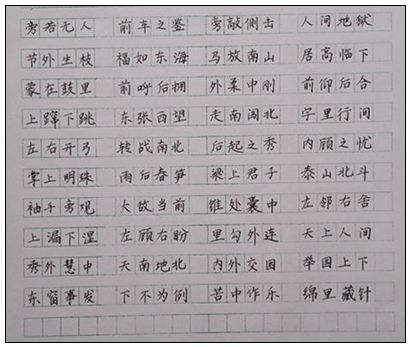 旁若无人 前车之鉴 旁敲侧击 人间地狱
节外生枝 福如东海 马放南山 居高临下
蒙在鼓里 前呼后拥 外柔中刚 前仰后合
上蹿下跳 东张西望 走南闯北 字里行间
左右开弓 转战南北 后起之秀 内顾之忧
掌上明珠 雨后春笋 梁上君子 泰山北斗
袖手旁观 大敌当前 锥处囊中 左邻右舍
上漏下湿 左顾右盼 里勾外连 天上人间
秀外慧中 天南地北 内外交困 举国上下
东窗事发 下不为例 苦中作乐 绵里藏针